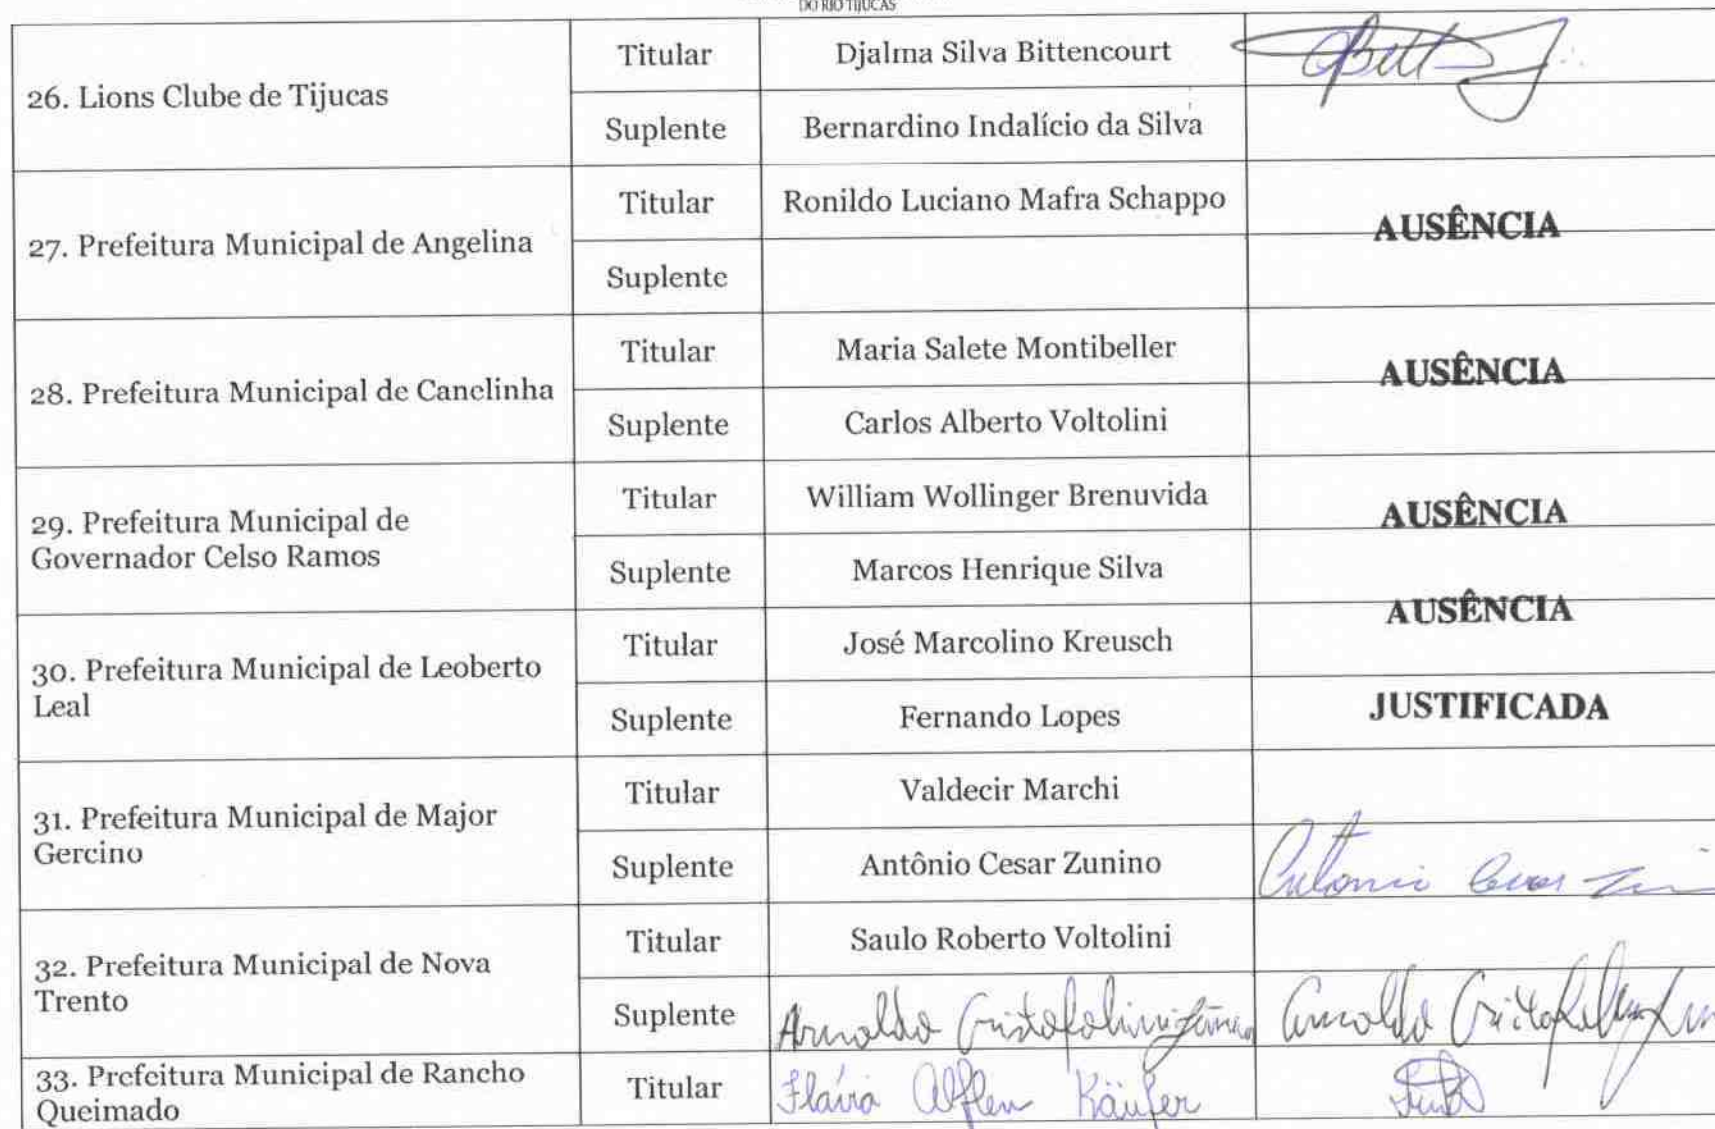 DO RIO TIJUCAS
26. Lions Clube de Tijucas
Titular
Djalma Silva Bittencourt
Suplente
Bernardino Indalício da Silva
27. Prefeitura Municipal de Angelina
Titular
Ronildo Luciano Mafra Schappo
AUSÊNCIA
Suplente
28. Prefeitura Municipal de Canelinha
Titular
Maria Salete Montibeller
AUSÊNCIA
Suplente
Carlos Alberto Voltolini
29. Prefeitura Municipal de
Governador Celso Ramos
Titular
William Wollinger Brenuvida
AUSÊNCIA
Suplente
Marcos Henrique Silva
30. Prefeitura Municipal de Leoberto
Leal
Titular
José Marcolino Kreusch
AUSÊNCIA
Suplente
Fernando Lopes
JUSTIFICADA
31. Prefeitura Municipal de Major
Gercino
Titular
Valdecir Marchi
Suplente
Antônio Cesar Zunino
32. Prefeitura Municipal de Nova
Trento
Titular
Saulo Roberto Voltolini
Suplente
Arnoldo Cristofolini Júnior
33. Prefeitura Municipal de Rancho
Queimado
Titular
Flávia Alflen Käufer